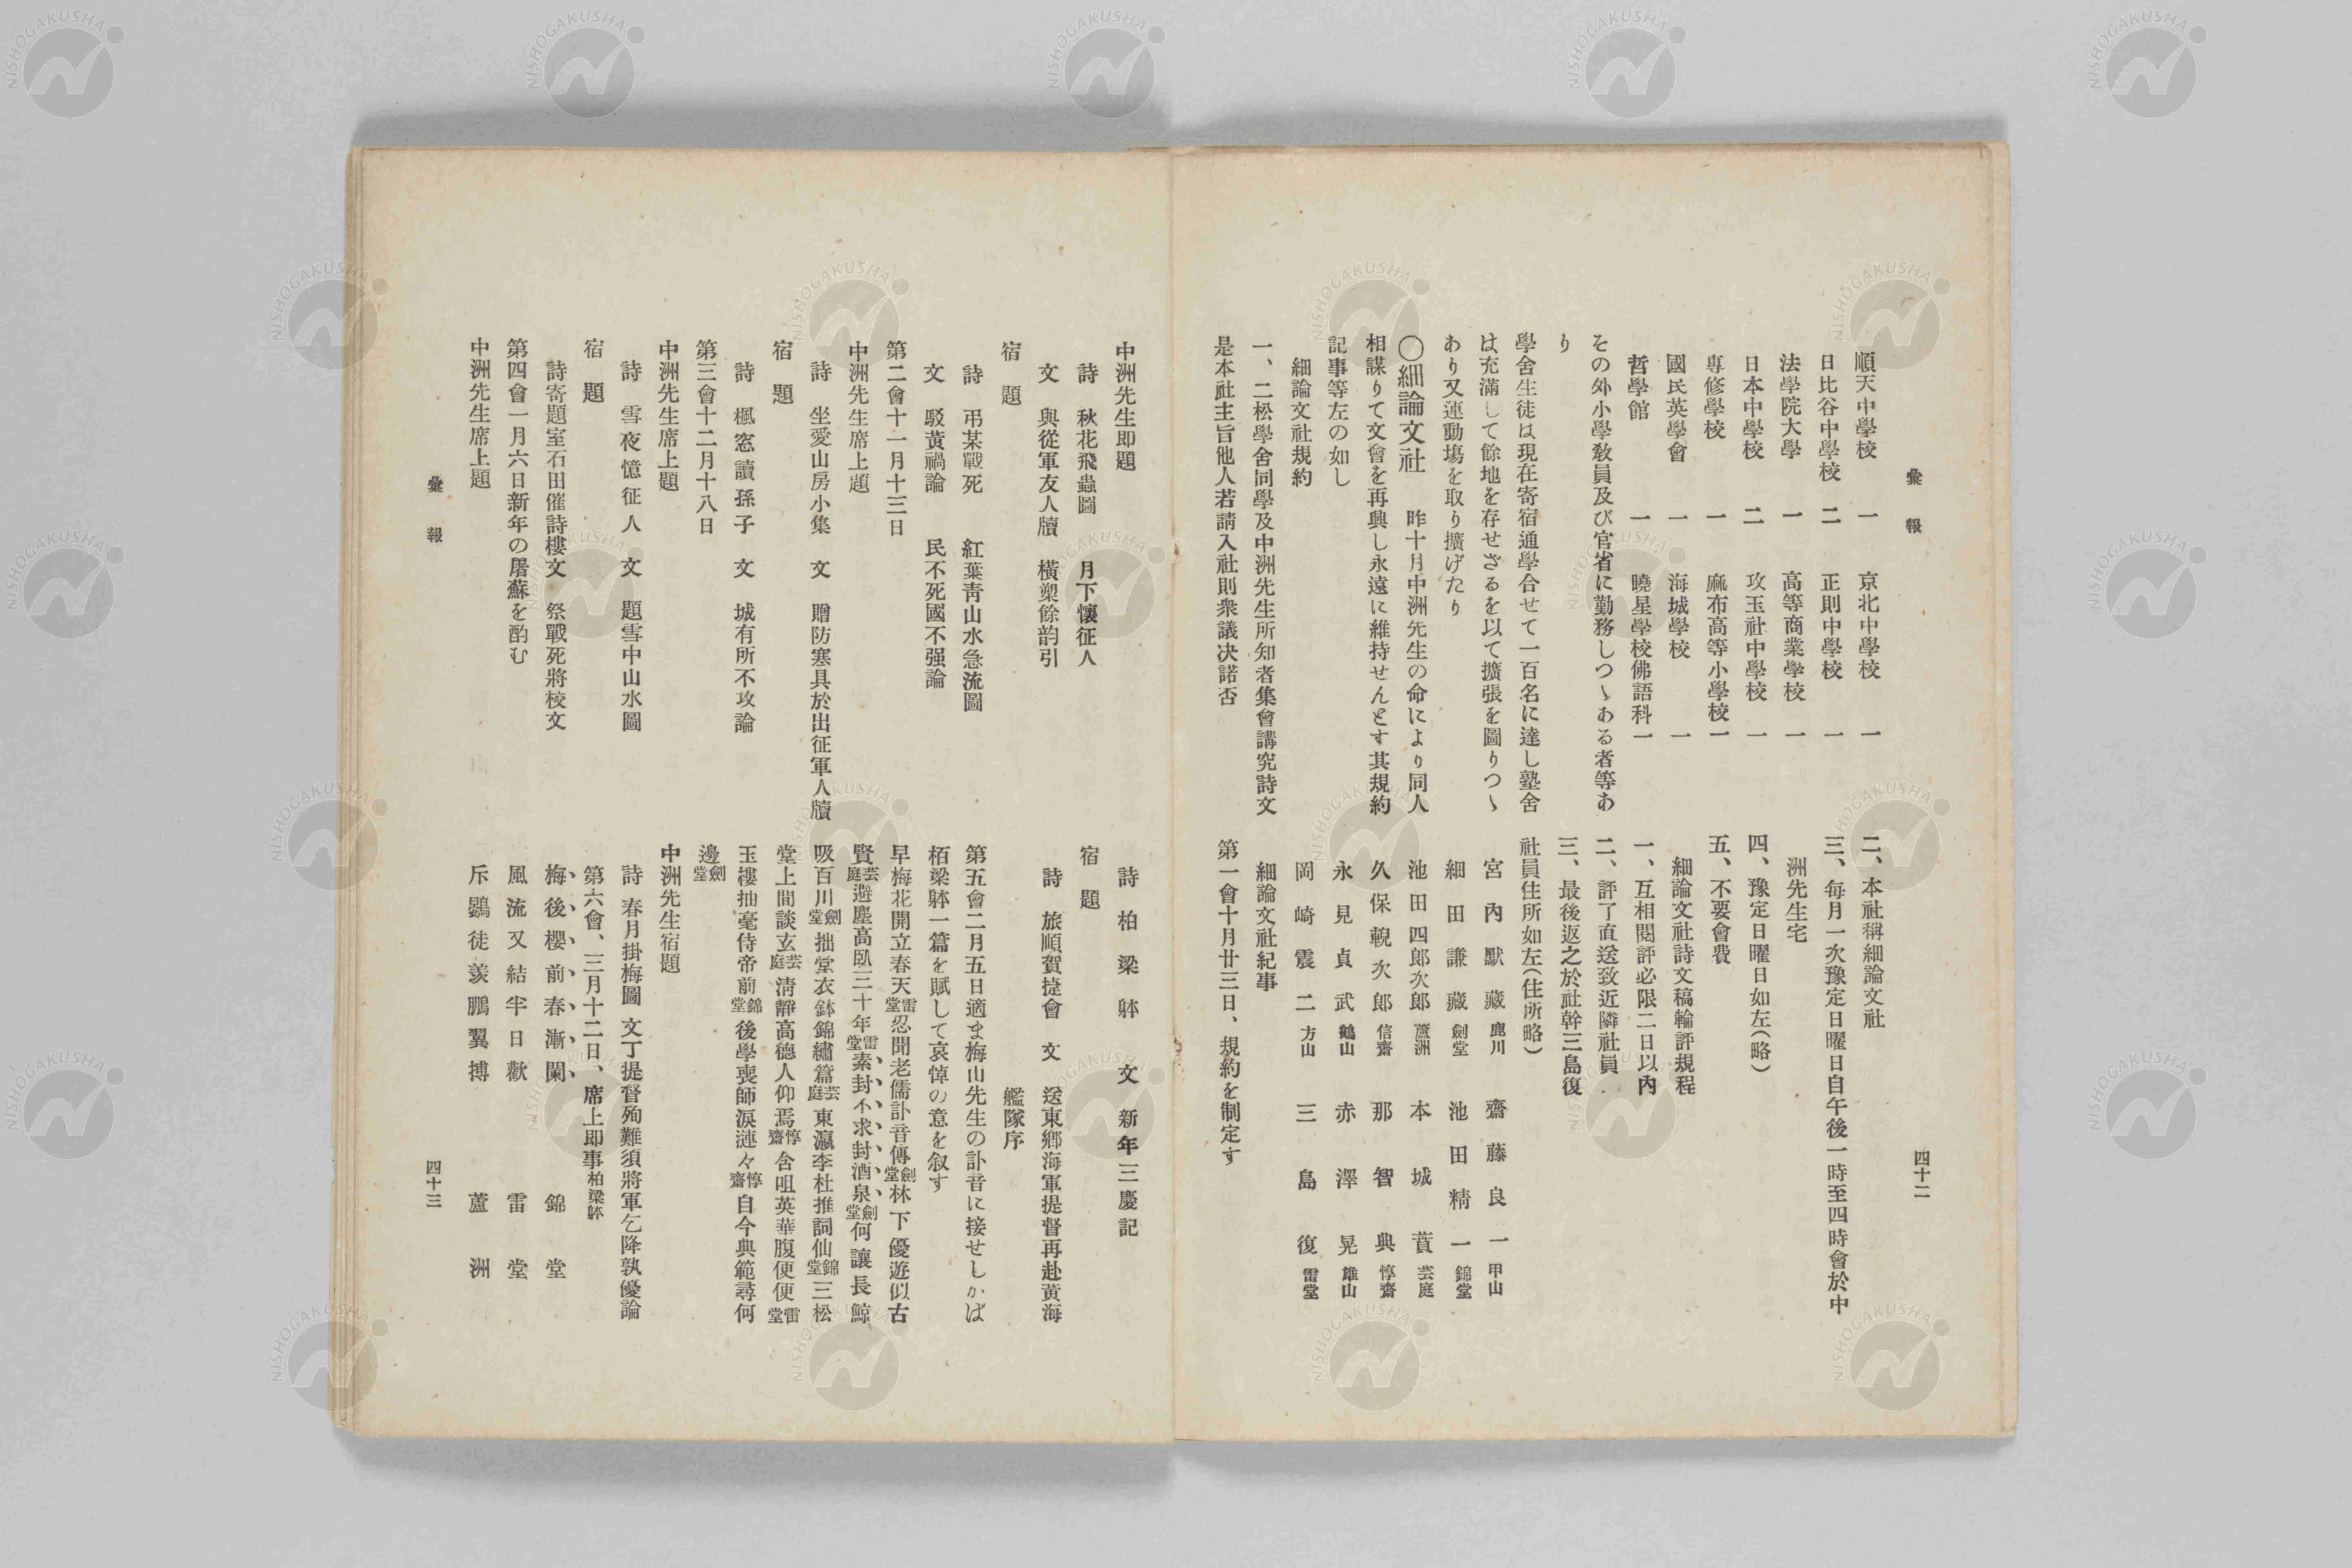 彙報
四十二
順天中學校 一 京北中學校 一
日比谷中學校 二 正則中學校 一
法學院大學 一 高等商業學校 一
日本中學校 二 攻玉社中學校 一
専修學校 一 麻布高等小學校 一
國民英學會 一 海城學校 一
哲學館 一 曉星學校佛語科 一
その外小學敎員及び官省に勤務しつゝある者等あ
り
學舍生徒は現在寄宿通學合せて一百名に達し塾舍
は充滿して餘地を存せざるを以て擴張を圖りつゝ
あり又運動塲を取り擴げたり
〇細論文社 昨十月中洲先生の命により同人
相謀りて文會を再興し永遠に維持せんとす其規約
記事等左の如し
細論文社規約
一、二松學舍同學及中洲先生所知者集會講究詩文
是本社主旨他人若請入社則衆議决諾否
二、本社稱細論文社
三、每月一次豫定日曜日自午後一時至四時會於中
洲先生宅
四、豫定日曜日如左(略)
五、不要會費
細論文社詩文稿輪評規程
一、互相閱評必限二日以內
二、評了直送致近隣社員
三、最後返之於社幹三島復
社員住所如左(住所略)
宮內默藏 鹿川 齋藤良一 甲山
細田謙藏 劍堂 池田精一 錦堂
池田四郎次郎 蘆洲 本城蕡 芸庭
久保輗次郎 信齋 那智典 惇齋
永見貞武 鶴山 赤澤晃 雄山
岡崎震二 方山 三島復 雷堂
細論文社紀事
第一會十月廿三日、規約を制定す
中洲先生即題
詩 秋花飛蟲圖 月下懷征人
文 與從軍友人牘 橫槊餘韵引
宿題
詩 弔某戰死 紅葉靑山水急流圖
文 駁黃禍論 民不死國不强論
第二會十一月十三日
中洲先生席上題
詩 坐愛山房小集 文 贈防寒具於出征軍人牘
宿題
詩 楓窓讀孫子 文 城有所不攻論
第三會十二月十八日
中洲先生席上題
詩 雪夜憶征人 文 題雪中山水圖
宿題
詩寄題室石田催詩樓文 祭戰死將校文
第四會一月六日新年の屠蘇を酌む
中洲先生席上題
詩 柏梁躰 文 新年三慶記
宿題
詩 旅順賀捷會 文 送東鄕海軍提督再赴黃海
艦隊序
第五會二月五日適ま梅山先生の訃音に接せしかば
栢梁躰一篇を賦して哀悼の意を叙す
早梅花開立春天雷堂忍聞老儒訃音傳劍堂林下優遊似古
賢芸庭避塵高臥三十年雷堂素封不求封酒泉劍堂何讓長鯨
吸百川劍堂拙堂衣鉢錦繡篇芸庭東瀛李杜推詞仙錦堂三松
堂上間談玄芸庭淸靜高德人仰焉惇齋含咀英華腹便便雷堂
玉樓抽毫侍帝前錦堂後學喪師淚漣々惇齋自今典範尋何
邊劍堂
中洲先生宿題
詩 春月掛梅圖 文丁提督殉難須將軍乞降孰優論
第六會、三月十二日、席上即事柏梁躰
梅後櫻前春漸闌 錦堂
風流又結半日歡 雷堂
斥鷃徒羨鵬翼搏 蘆洲
彙報
四十三